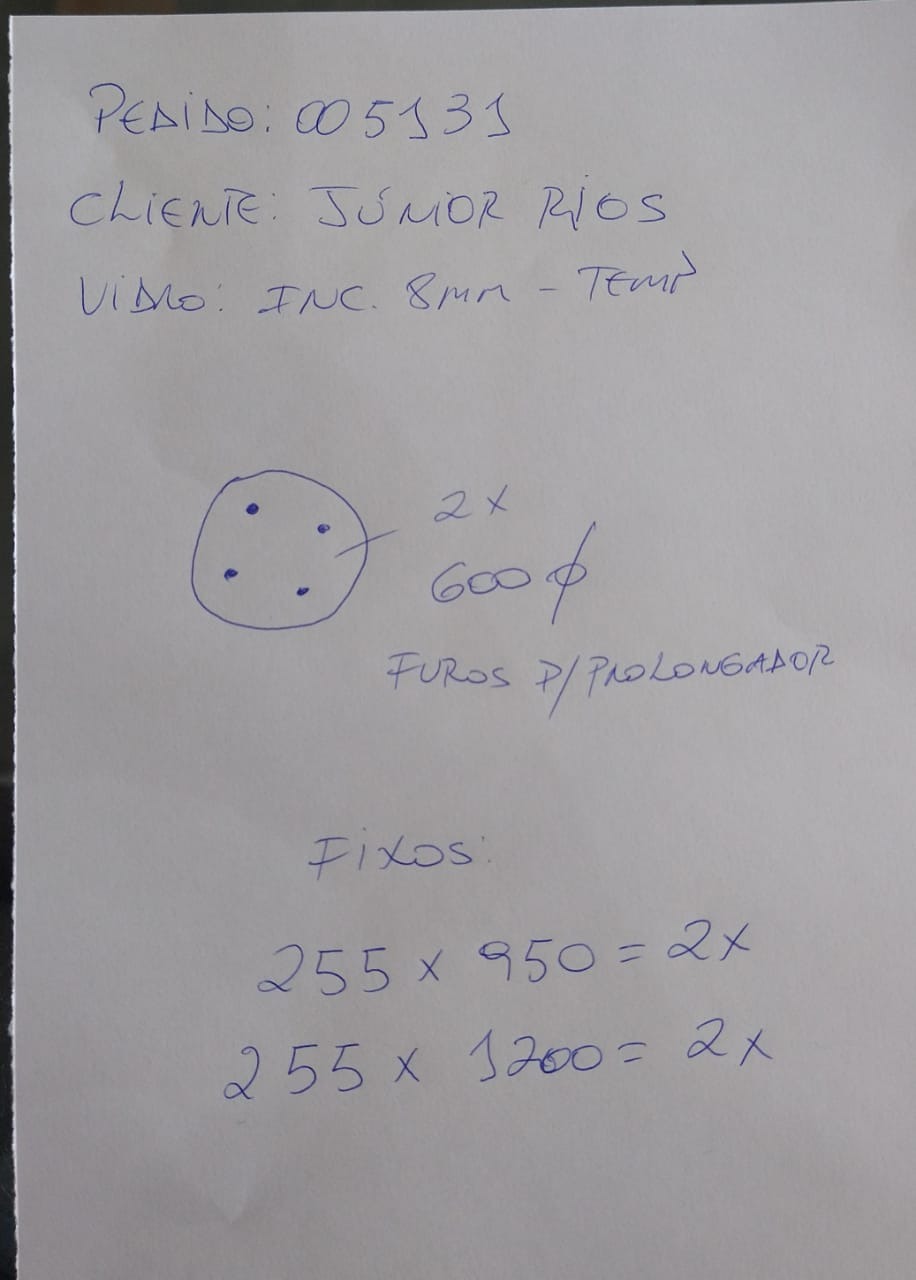 PEDIDO: 005131
CLIENTE: JÚNIOR RIOS
VIDRO: INC. 8MM - TEMP
2x
600 ϕ
FUROS P/ PROLONGADOR
FIXOS:
255 x 950 = 2x
255 x 1200 = 2x